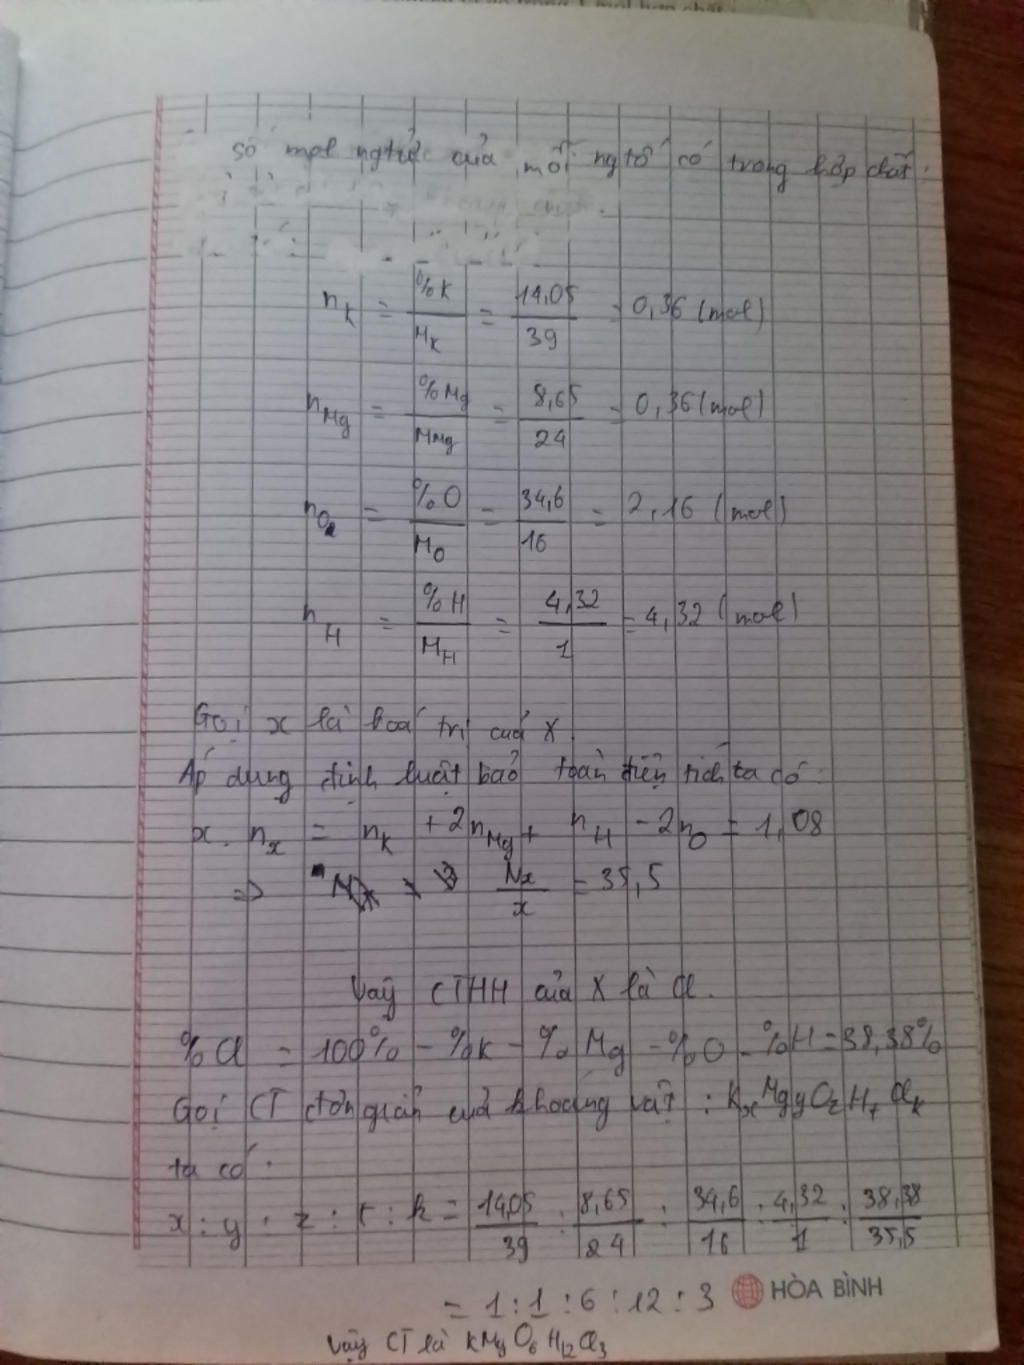 số mol ngtử của mỗi ngtố có trong hợp chất:
n_K = %K / M_K = 14,05 / 39 = 0,36 (mol)
n_Mg = %Mg / M_Mg = 8,65 / 24 = 0,36 (mol)
n_O = %O / M_O = 34,6 / 16 = 2,16 (mol)
n_H = %H / M_H = 4,32 / 1 = 4,32 (mol)
Gọi x là hoá trị của X
Áp dụng định luật bảo toàn điện tích ta có:
x. n_x = n_K + 2n_Mg + n_H - 2n_O = 1,08
=> M_x / x = 35,5
Vậy CTHH của X là Cl.
%Cl = 100% - %K - %Mg - %O - %H = 38,38%
Gọi CT đơn giản của khoáng vật : K_x Mg_y O_z H_t Cl_k
ta có:
x : y : z : t : k = 14,05 / 39 : 8,65 / 24 : 34,6 / 16 : 4,32 / 1 : 38,38 / 35,5
HÒA BÌNH
= 1 : 1 : 6 : 12 : 3
Vậy CT là KMgO6H12Cl3